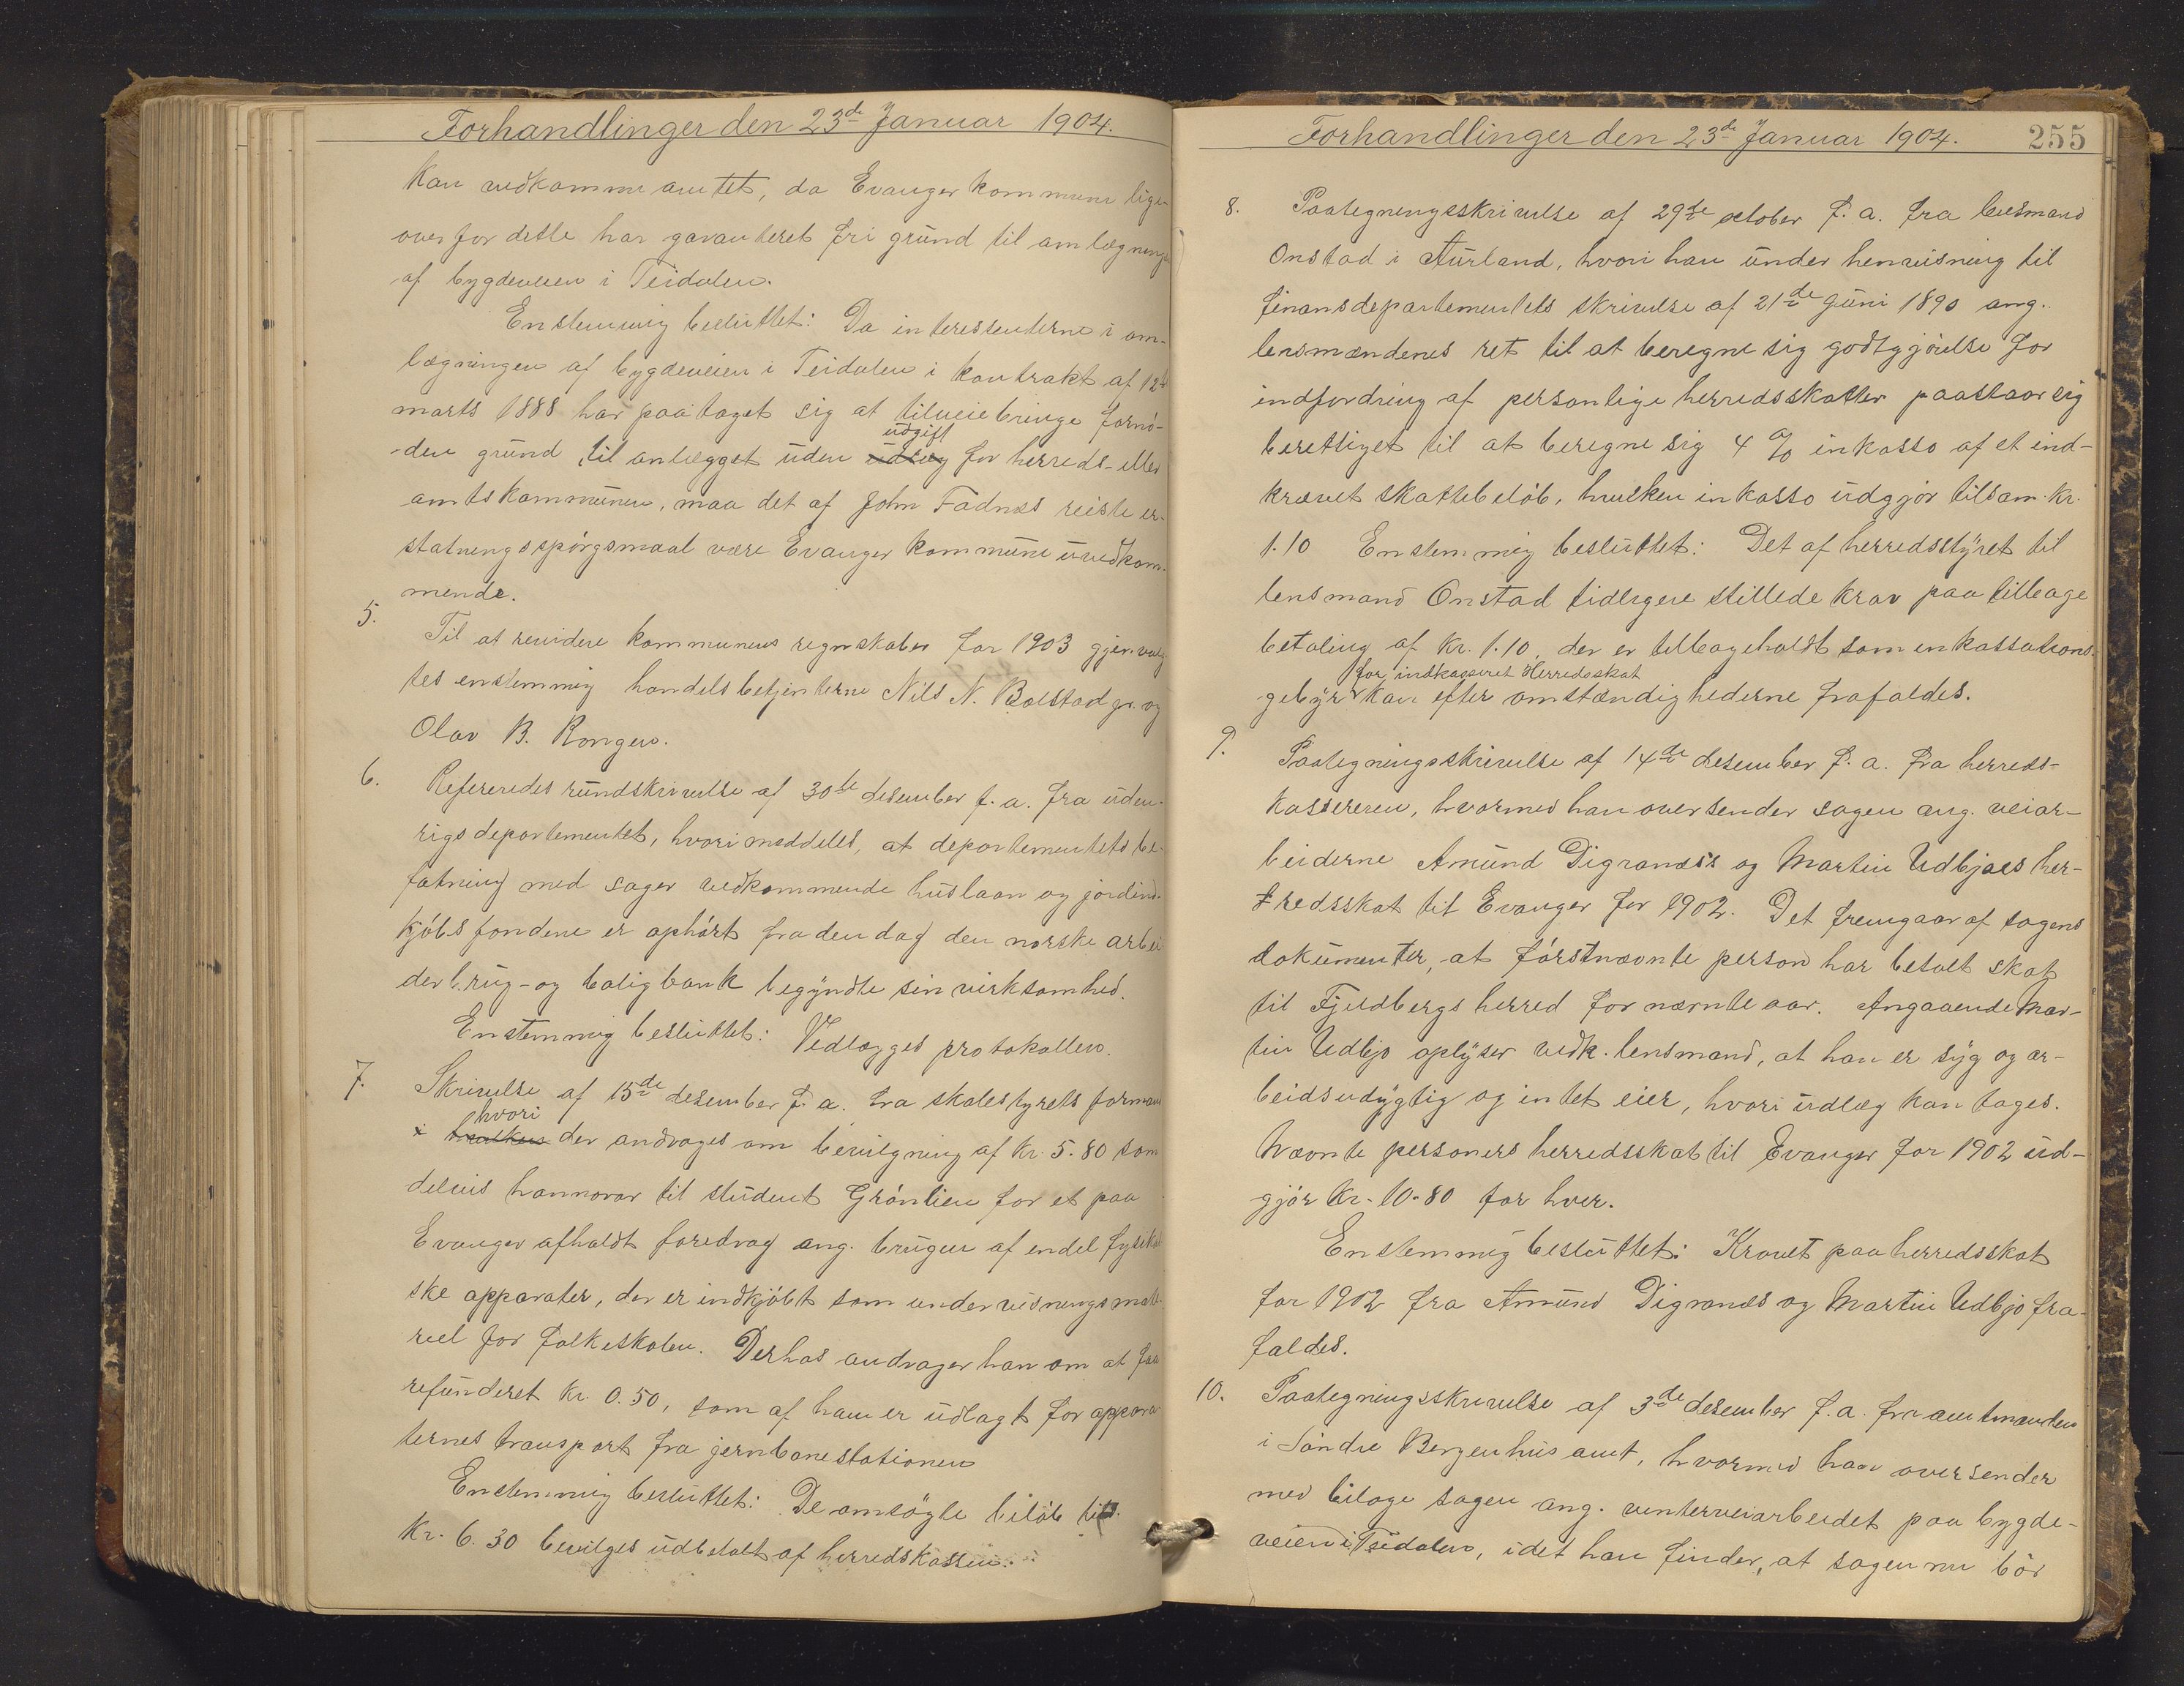 Forhandlinger den 23de Januar 1904.
kan vedkomme amtet, da Evanger kommune lige-
overfor dette har garanteret fri grund til omlægningen
af bygdeveien i Teidalen.
Enstemmig besluttet: Da interessenterne i om-
lægningen af bygdeveien i Teidalen i kontrakt af 12te
marts 1888 har paataget sig at tilveiebringe fornö-
udgift
den grund til anlægget uden udlæg for herreds- eller
amtskommunen, maa det af John Fadnæs reiste er-
statningsspörgsmaal være Evanger kommune uvedkom-
mende.
5.
Til at revidere kommunens regnskaber for 1903 gjenvalg-
tes enstemmig handelsbetjenterne Nils N. Bolstad jr. og
Olav B. Rongen.
6.
Refereredes rundskrivelse af 30te desember f. a. fra uden-
rigsdepartementet, hvori meddeles, at departementets be-
fatning med sager vedkommende huslaan og jordind-
kjöbsfondene er ophört fra den dag den norske arbei
derbrug- og boligbank begyndte sin virksomhed.
Enstemmig besluttet: Vedlægges protokollen.
7.
Skrivelse af 15de desember f. a. fra skolestyrets formand
hvori
i hvilken der andrages om bevilgning af kr. 5.80 som
delvis honnorar til student Grönlien for et paa
Evanger afholdt foredrag ang. brugen af endel fysikal
ske apparater, der er indkjöbt som undervisningsmate-
riel for folkeskolen. Derhos andrager han om at faa
refunderet kr. 0.50, som af ham er udlagt for appara
ternes transport fra jernbanestationen
Enstemmig besluttet: De omsögte belöb tils.
kr. 6.30 bevilges udbetalt af herredskassen.
Forhandlinger den 23de Januar 1904.
255
8.
Paategningsskrivelse af 29de october f. a. fra lensmand
Onstad i Aurland, hvori han under henvisning til
finansdepartementets skrivelse af 21de juni 1890 ang.
lensmændenes ret til at beregne sig godtgjörelse for
indfordring af personlige herredsskatter paastaar sig
berettiget til at beregne sig 4 % inkasso af et ind-
krævet skattebelöb, hvilken inkasso udgjör tilsam. kr.
1.10 Enstemmig besluttet: Det af herredsstyret til
lensmand Onstad tidligere stillede krav paa tilbage
betaling af kr. 1.10, der er tilbageholdt som inkassations-
for indkasseret Herredsskat
gebyr kan efter omstændighederne frafaldes.
9.
Paategningsskrivelse af 14de desember f. a. fra herreds-
kassereren, hvormed han oversender sagen ang. veiar-
beiderne Amund Digranæss og Martin Udbjoes her-
redsskat til Evanger for 1902. Det fremgaar af sagens
dokumenter, at förstnævnte person har betalt skat
til Fjeldbergs herred for nævnte aar. Angaaende Mar-
tin Udbjo oplyser vedk. lensmand, at han er syg og ar-
beidsudygtig og intet eier, hvori udlæg kan tages.
Nævnte personers herredsskat til Evanger for 1902 ud-
gjör kr. 10.80 for hver.
Enstemmig besluttet: Kravet paa herredsskat
for 1902 fra Amund Digranæs og Martin Udbjo fra-
faldes.
10.
Paategningsskrivelse af 3de desember f. a. fra amtmanden
i Söndre Bergenhus amt, hvormed han oversender
med bilage sagen ang. vinterveiarbeidet paa bygde-
veien i Teidalen, idet han finder, at sagen nu bör